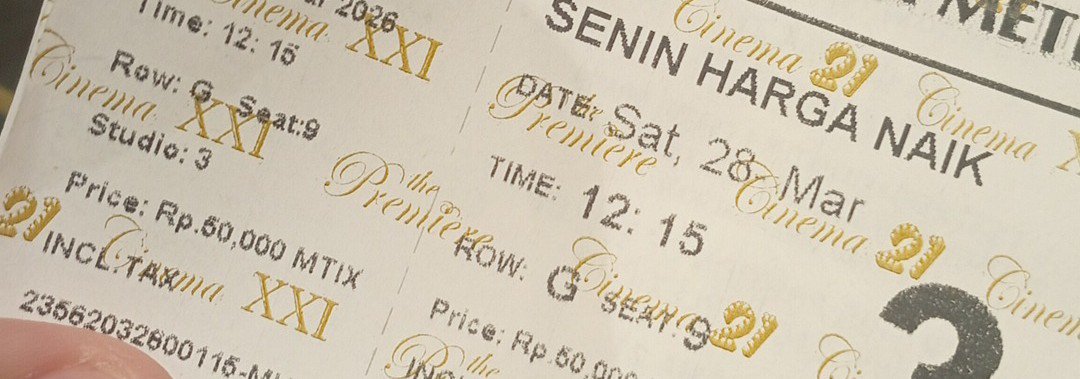 2026
Time: 12: 15
Row: G Seat:9
Studio: 3
Price: Rp.50,000 MTIX
INCL.TAX
SENIN HARGA NAIK
DATE: Sat, 28 Mar
TIME: 12: 15
ROW: G SEAT 9
Price: Rp.50,000
3
Cinema XXI
Cinema XXI
Cinema XXI
the Premiere
the Premiere
the
Cinema 21
Cinema
Cinema 21
Cinema 21
21